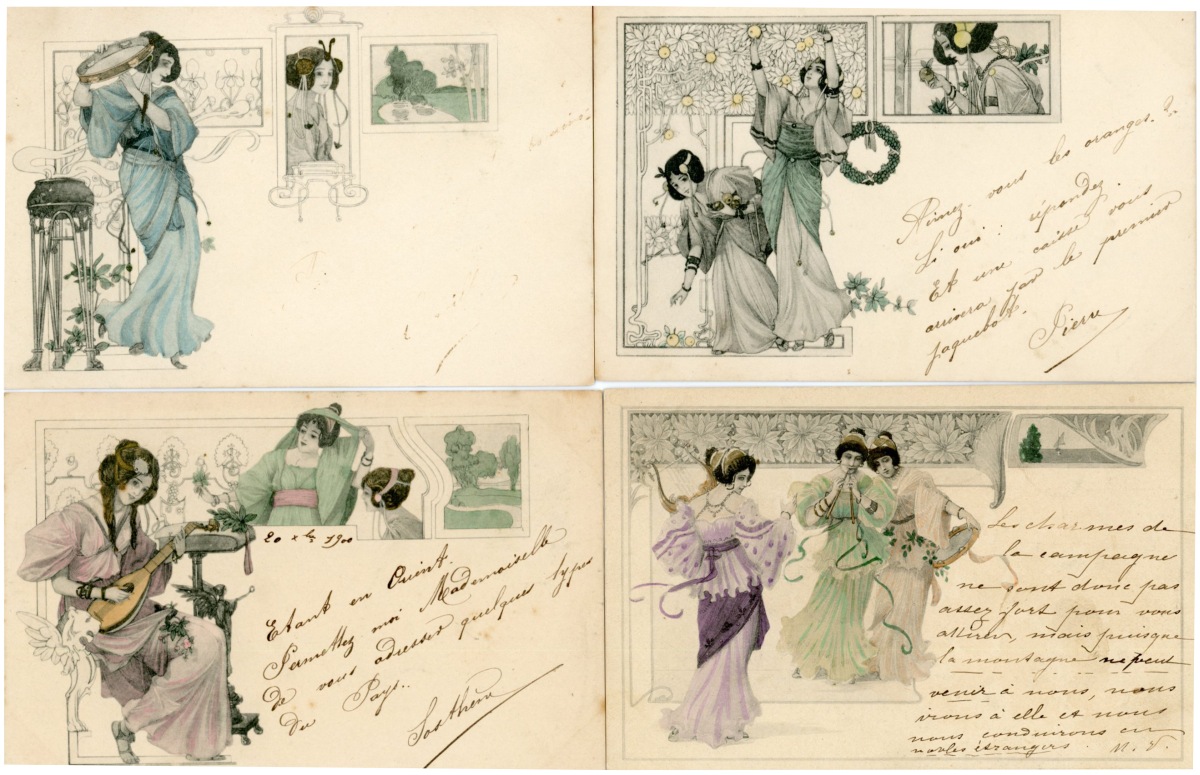 Aimez-vous les oranges ?
Si oui : répondez
Et une caisse vous
arrivera par le premier
paquebot.
Pierre
20 X bre 1900
Orient.
Etant en
Permettez moi Mademoiselle
de vous adresser quelques types
du Pays..
Sosthène
Les charmes de
la campagne
ne sont donc pas
assez fort pour vous
attirer, mais puisque
la montagne ne peut
venir à nous, nous
irons à elle et nous
nous conduirons en
nobles étrangers. M. V.